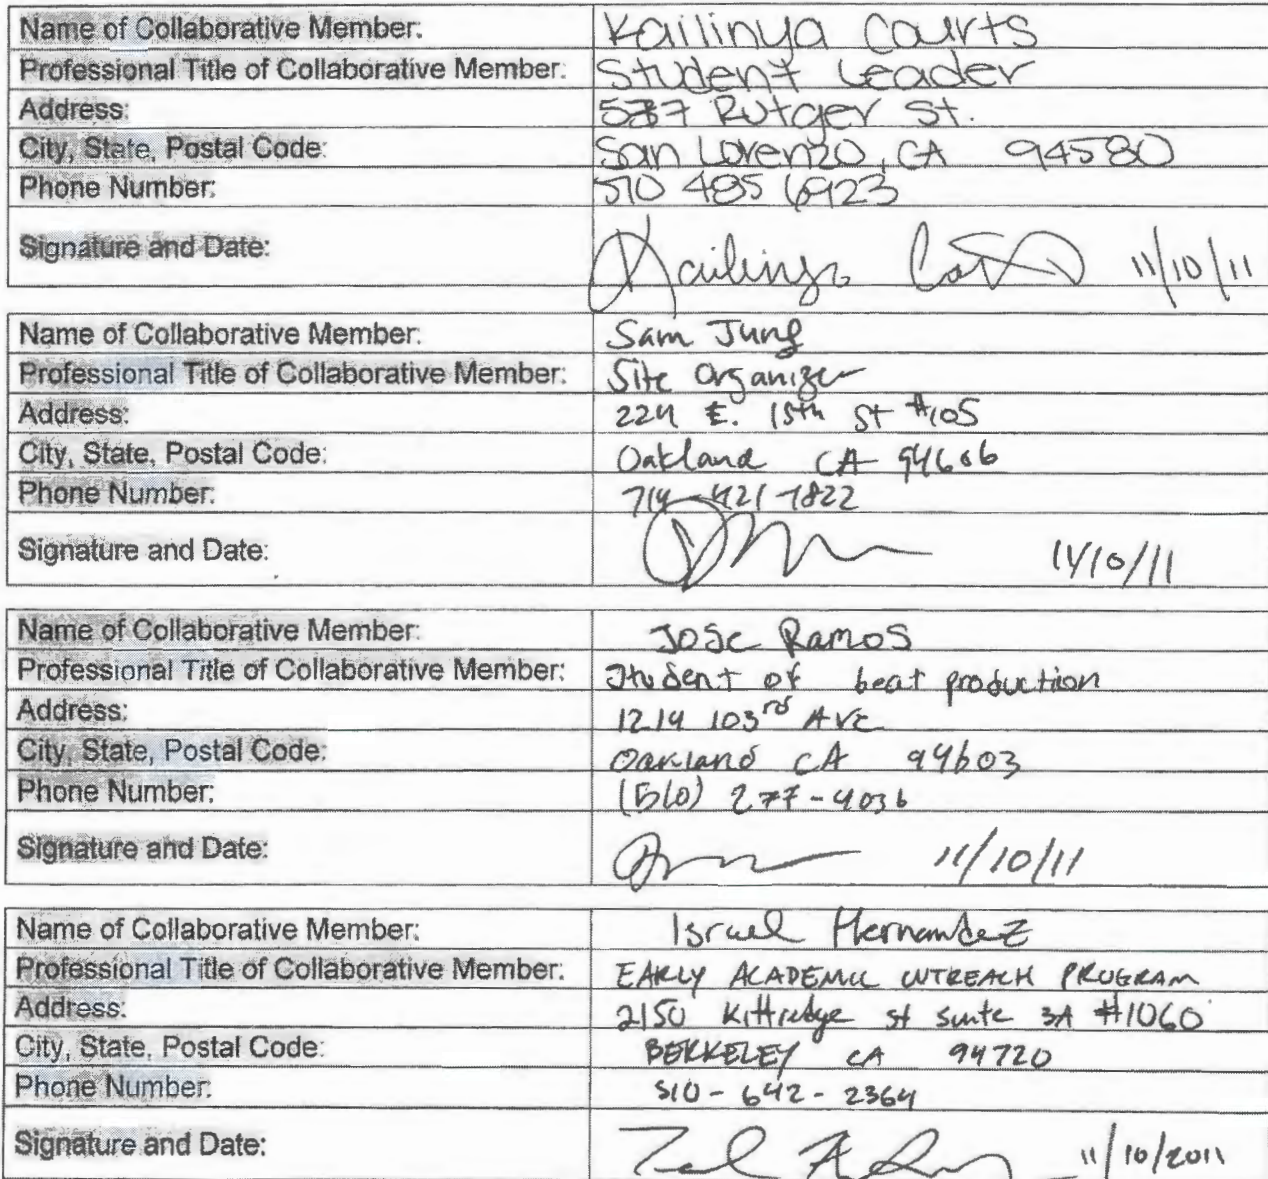 Name of Collaborative Member: Kailinya Courts
Professional Title of Collaborative Member: Student Leader
Address: 537 Rutger St.
City, State, Postal Code: San Lorenzo, CA 94580
Phone Number: 510 485 6923
Signature and Date: Kailinya 11/10/11
Name of Collaborative Member: Sam Jung
Professional Title of Collaborative Member: Site Organizer
Address: 224 E. 15th St #105
City, State, Postal Code: Oakland CA 94606
Phone Number: 714-421-7822
Signature and Date: 11/10/11
Name of Collaborative Member: Jose Ramos
Professional Title of Collaborative Member: Student of beat production
Address: 1214 103rd Ave
City, State, Postal Code: Oakland CA 94603
Phone Number: (510) 277-4036
Signature and Date: 11/10/11
Name of Collaborative Member: Israel Hernandez
Professional Title of Collaborative Member: EARLY ACADEMIC OUTREACH PROGRAM
Address: 2150 Kittredge st suite 3A #1060
City, State, Postal Code: BERKELEY CA 94720
Phone Number: 510-642-2364
Signature and Date: 11/10/2011